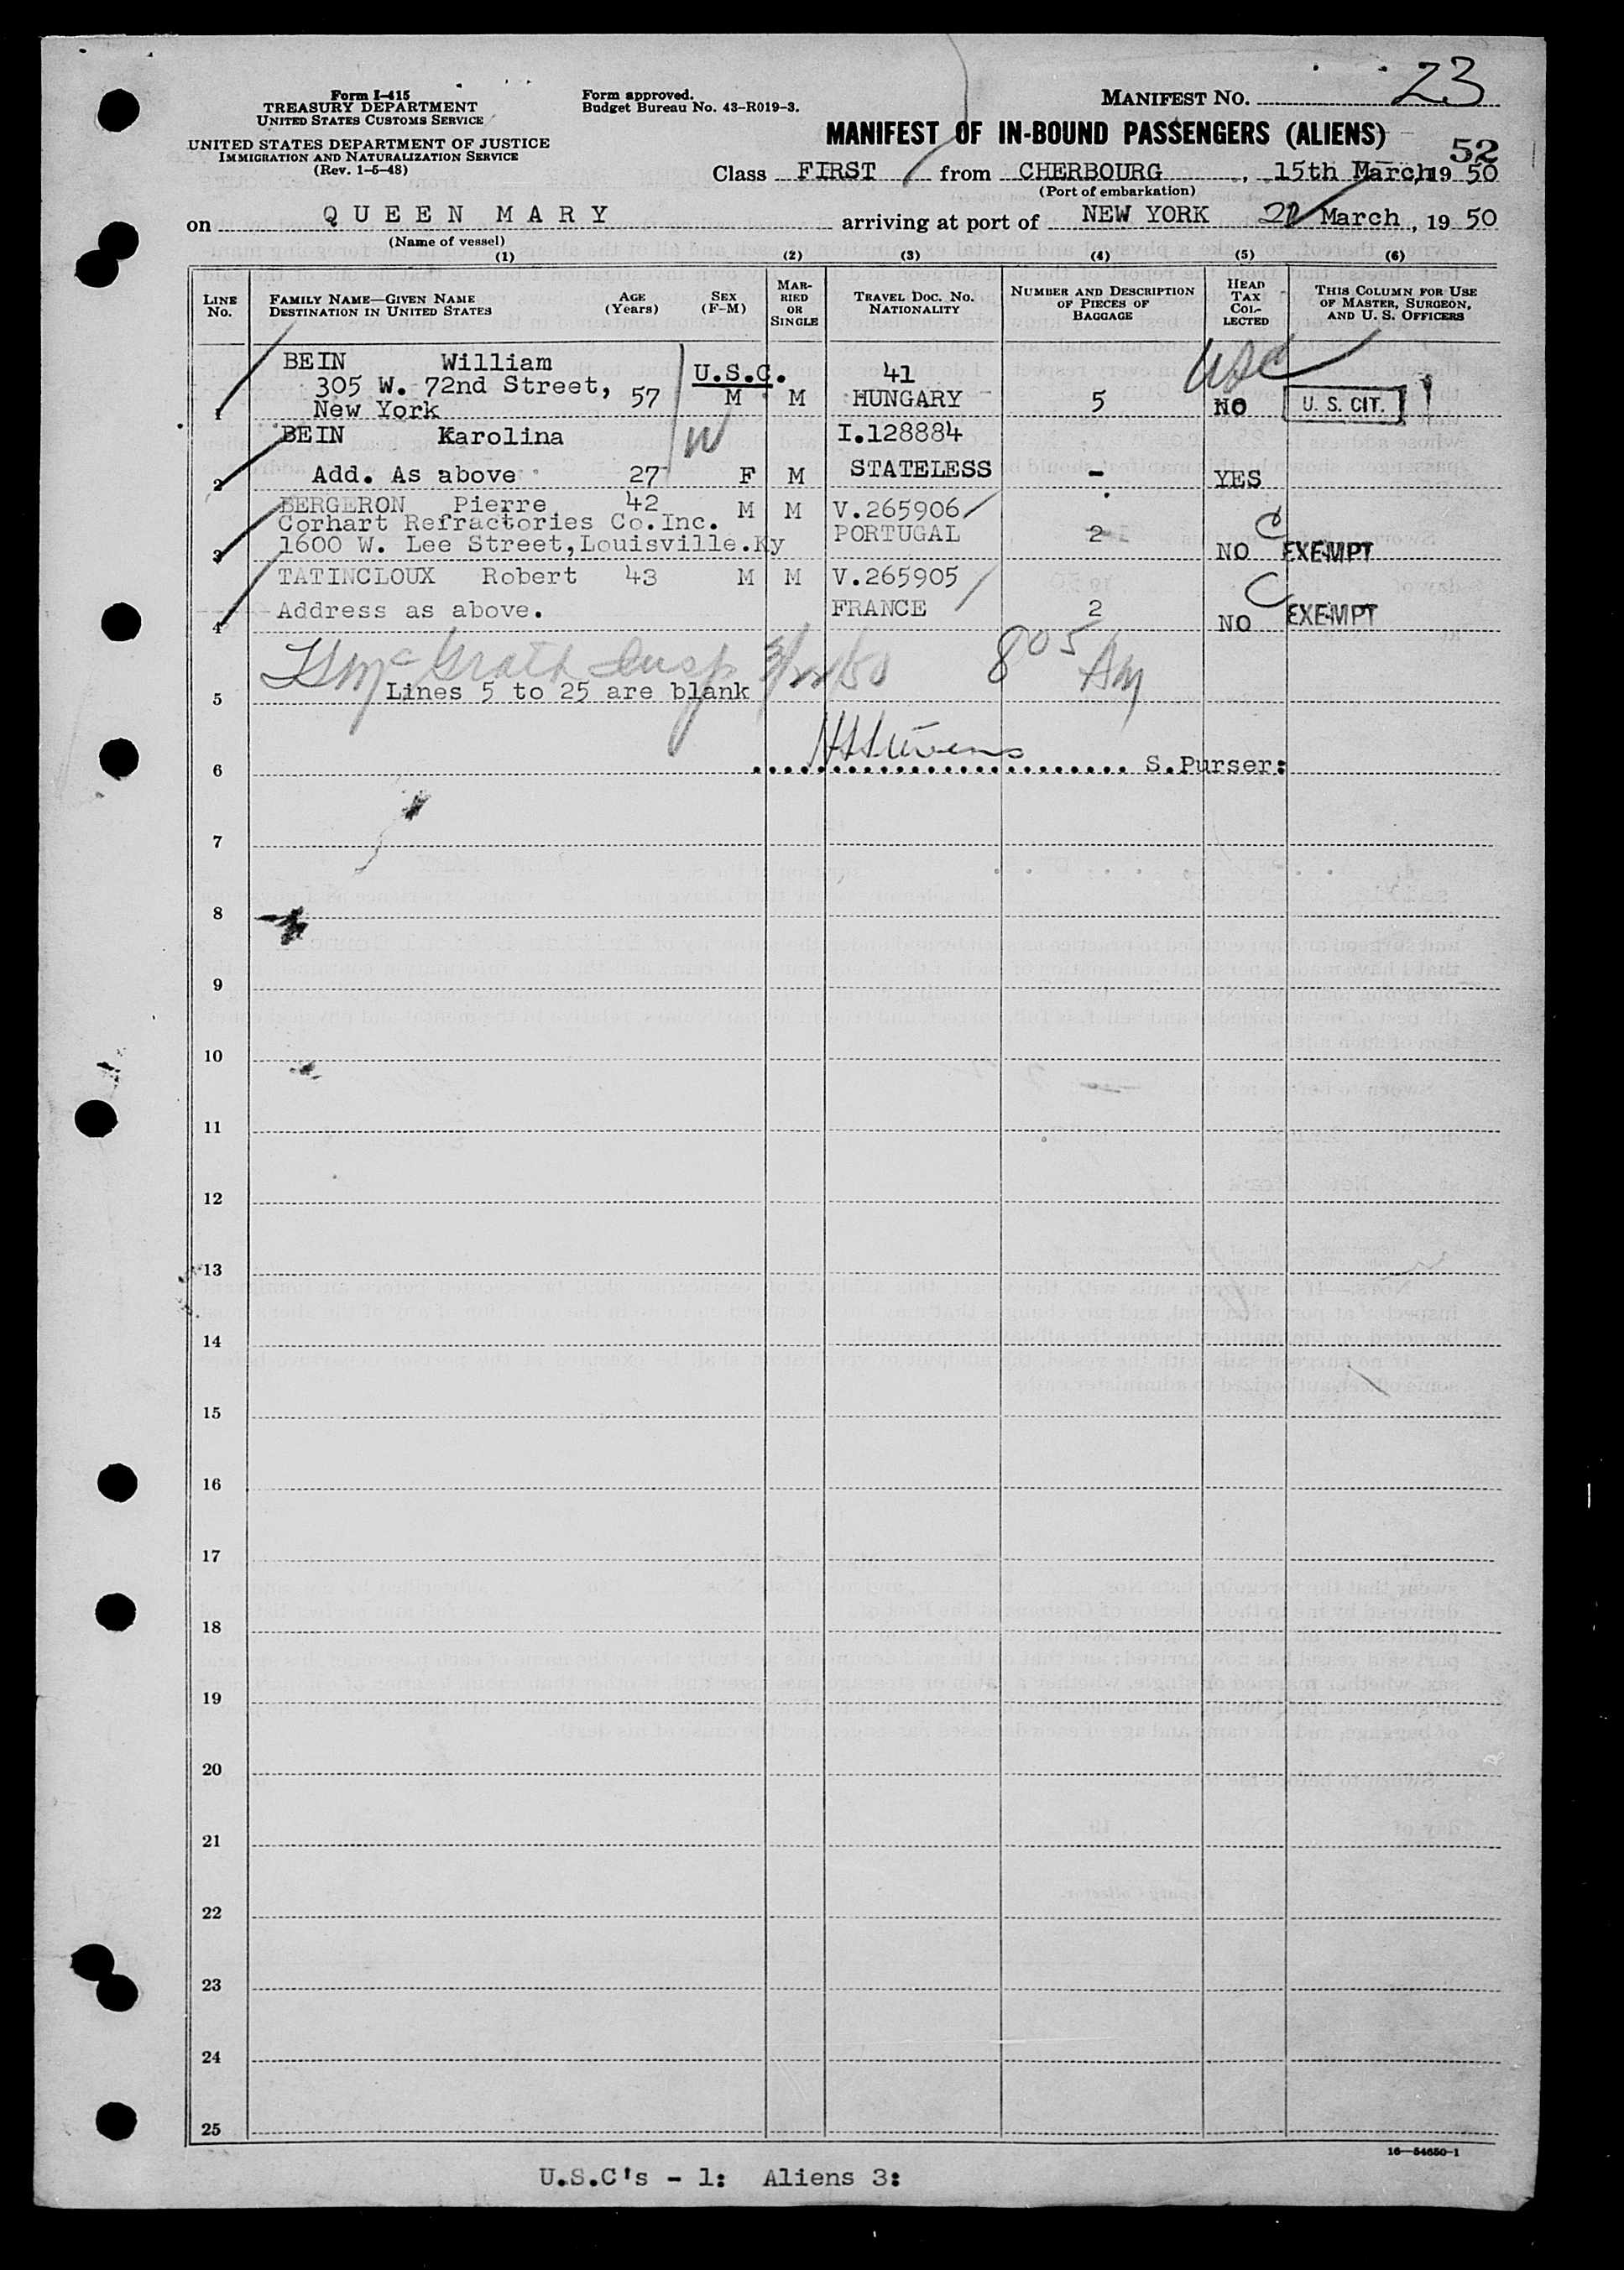 Form I-415
TREASURY DEPARTMENT
UNITED STATES CUSTOMS SERVICE
UNITED STATES DEPARTMENT OF JUSTICE
IMMIGRATION AND NATURALIZATION SERVICE
(Rev. 1-5-48)
Form approved.
Budget Bureau No. 43-R019-3.
MANIFEST NO. 23
MANIFEST OF IN-BOUND PASSENGERS (ALIENS)
52
Class FIRST from CHERBOURG, 15th March, 19 50
(Port of embarkation)
on QUEEN MARY arriving at port of NEW YORK March, 19 50
(Name of vessel)
(1) (2) (3) (4) (5) (6)
LINE No.
FAMILY NAME—GIVEN NAME
DESTINATION IN UNITED STATES
AGE (Years)
SEX (F-M)
MARRIED OR SINGLE
TRAVEL DOC. NO. NATIONALITY
NUMBER AND DESCRIPTION OF PIECES OF BAGGAGE
HEAD TAX COLLECTED
THIS COLUMN FOR USE OF MASTER, SURGEON, AND U. S. OFFICERS
BEIN William U.S.C. 41 USC
305 W. 72nd Street,
1 New York 57 M M HUNGARY 5 NO U. S. CIT.
BEIN Karolina W I.128884
2 Add. As above 27 F M STATELESS - YES
BERGERON Pierre 42 M M V.265906
Corhart Refractories Co.Inc. PORTUGAL 2 C
3 1600 W. Lee Street,Louisville.Ky NO EXEMPT
TATINCLOUX Robert 43 M M V.265905 C
4 Address as above. FRANCE 2 NO EXEMPT
McGrath Insp 3/22/50 8 05 AM
5 Lines 5 to 25 are blank
HStevens
6 S.Purser:
7
8
9
10
11
12
13
14
15
16
17
18
19
20
21
22
23
24
25
16—54650-1
U.S.C's - 1: Aliens 3: